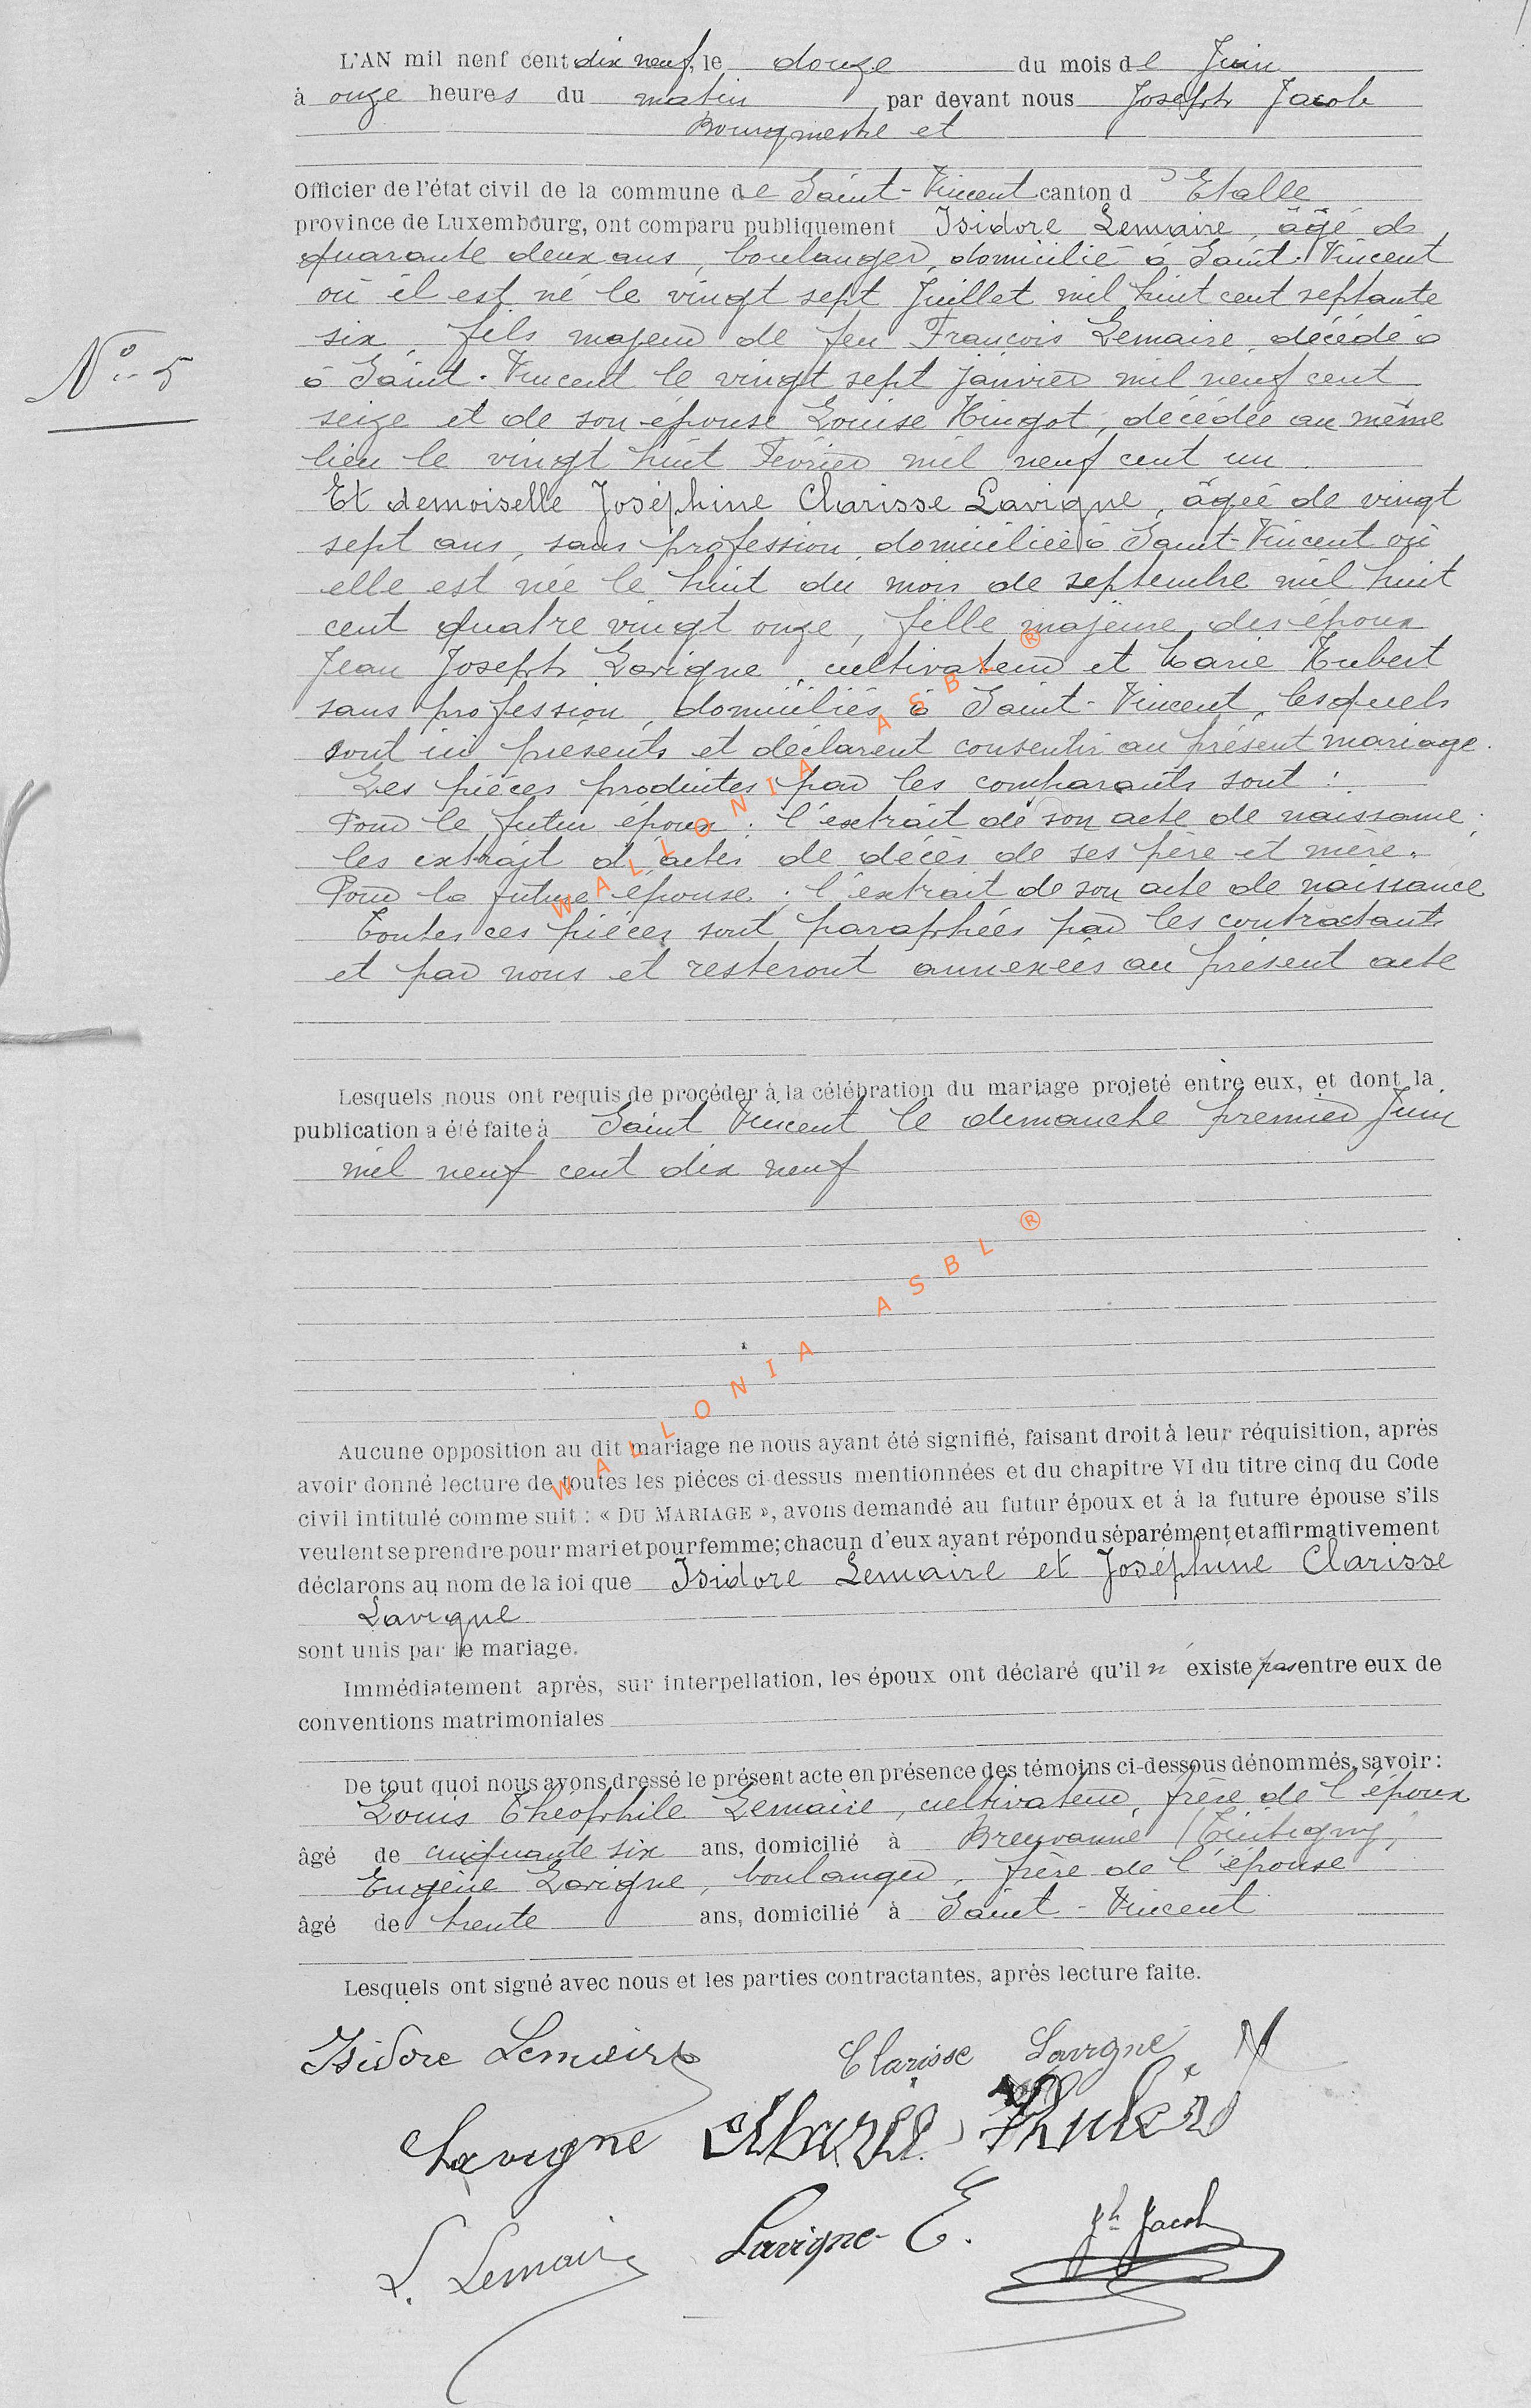 L'AN mil neuf cent dix neuf, le douze du mois de Juin
à onze heures du matin par devant nous Joseph Jacob
Bourgmestre et
Officier de l'état civil de la commune de Saint-Vincent canton d'Etalle
province de Luxembourg, ont comparu publiquement Isidore Lemaire, âgé de
quarante deux ans, boulanger, domicilié à Saint-Vincent
où il est né le vingt sept Juillet mil huit cent septante
six, fils majeur de feu François Lemaire, décédé à
N° 5
à Saint-Vincent le vingt sept janvier mil neuf cent
seize et de son épouse Louise Hingot, décédée au même
lieu le vingt huit Février mil neuf cent un.
Et demoiselle Joséphine Clarisse Lavigne, âgée de vingt
sept ans, sans profession, domiciliée à Saint-Vincent où
elle est née le huit du mois de septembre mil huit
cent quatre vingt onze, fille majeure des époux
Jean Joseph Lavigne, cultivateur et Marie Hubert
sans profession, domiciliés à Saint-Vincent, lesquels
sont ici présents et déclarent consentir au présent mariage.
Les pièces produites par les comparants sont :
Pour le futur époux : l'extrait de son acte de naissance.
les extrait d'actes de décès de ses père et mère.
Pour la future épouse : l'extrait de son acte de naissance
Toutes ces pièces sont paraphées par les contractants
et par nous et resteront annexées au présent acte
WALLONIA ASBL ®
Lesquels nous ont requis de procéder à la célébration du mariage projeté entre eux, et dont la
publication a été faite à Saint Vincent le dimanche premier Juin
mil neuf cent dix neuf
WALLONIA ASBL ®
Aucune opposition au dit mariage ne nous ayant été signifié, faisant droit à leur réquisition, après
avoir donné lecture de toutes les piéces ci-dessus mentionnées et du chapitre VI du titre cinq du Code
civil intitulé comme suit : « DU MARIAGE », avons demandé au futur époux et à la future épouse s'ils
veulent se prendre pour mari et pour femme; chacun d'eux ayant répondu séparément et affirmativement
déclarons au nom de la loi que Isidore Lemaire et Joséphine Clarisse
Lavigne
sont unis par le mariage.
Immédiatement après, sur interpellation, les époux ont déclaré qu'il n'existe pas entre eux de
conventions matrimoniales
De tout quoi nous avons dressé le présent acte en présence des témoins ci-dessous dénommés, savoir :
Louis Théophile Lemaire, cultivateur, frère de l'époux
âgé de cinquante six ans, domicilié à Breuvanne (Tintigny,
Eugène Lavigne, boulanger, frère de l'épouse
âgé de trente ans, domicilié à Saint-Vincent
Lesquels ont signé avec nous et les parties contractantes, après lecture faite.
Isidore Lemaire Clarisse Lavigne
Lavigne Marie Hubert
L. Lemaire Lavigne E. Jh Jacob